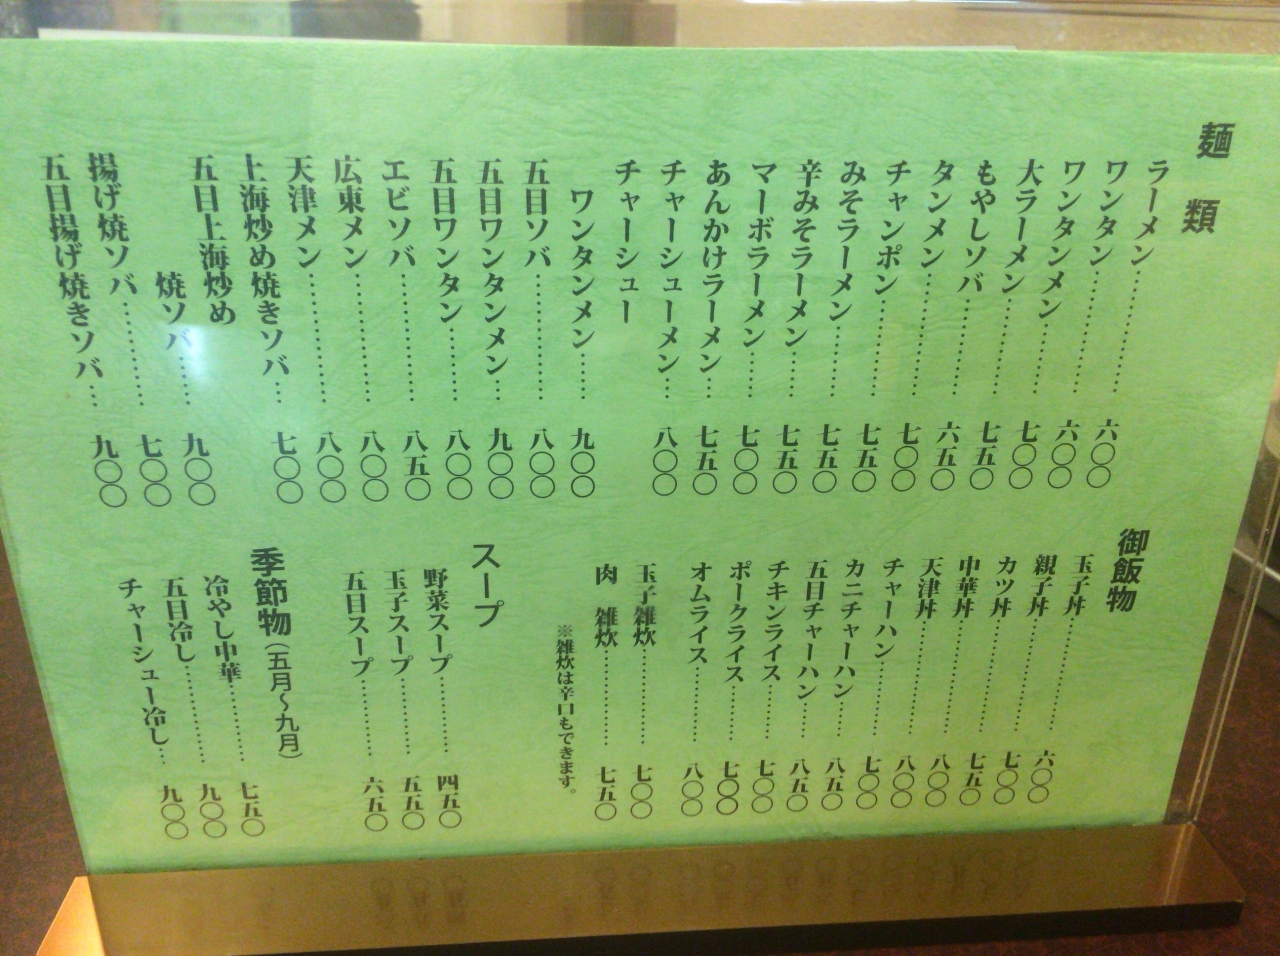 麺類
ラーメン………六〇〇
ワンタン………六〇〇
ワンタンメン……七〇〇
大ラーメン………七五〇
もやしソバ………六五〇
タンメン………七〇〇
チャンポン………七五〇
みそラーメン……七五〇
辛みそラーメン……七五〇
マーボラーメン……七〇〇
あんかけラーメン…七五〇
チャーシューメン…八〇〇
チャーシュー
ワンタンメン……九〇〇
五目ソバ………八〇〇
五目ワンタンメン…九〇〇
五目ワンタン……八〇〇
エビソバ………八五〇
広東メン………八〇〇
天津メン………八〇〇
上海炒め焼きソバ…七〇〇
五目上海炒め
焼ソバ……九〇〇
揚げ焼ソバ………七〇〇
五目揚げ焼きソバ…九〇〇
御飯物
玉子丼………六〇〇
親子丼………七〇〇
カツ丼………七五〇
中華丼………八〇〇
天津丼………八〇〇
チャーハン………七〇〇
カニチャーハン……八五〇
五目チャーハン……八五〇
チキンライス……七〇〇
ポークライス……七〇〇
オムライス………八〇〇
玉子雑炊………七〇〇
肉 雑炊………七五〇
※雑炊は辛口もできます。
スープ
野菜スープ………四五〇
玉子スープ………五五〇
五目スープ………六五〇
季節物(五月〜九月)
冷やし中華………七五〇
五目冷し………九〇〇
チャーシュー冷し…九〇〇